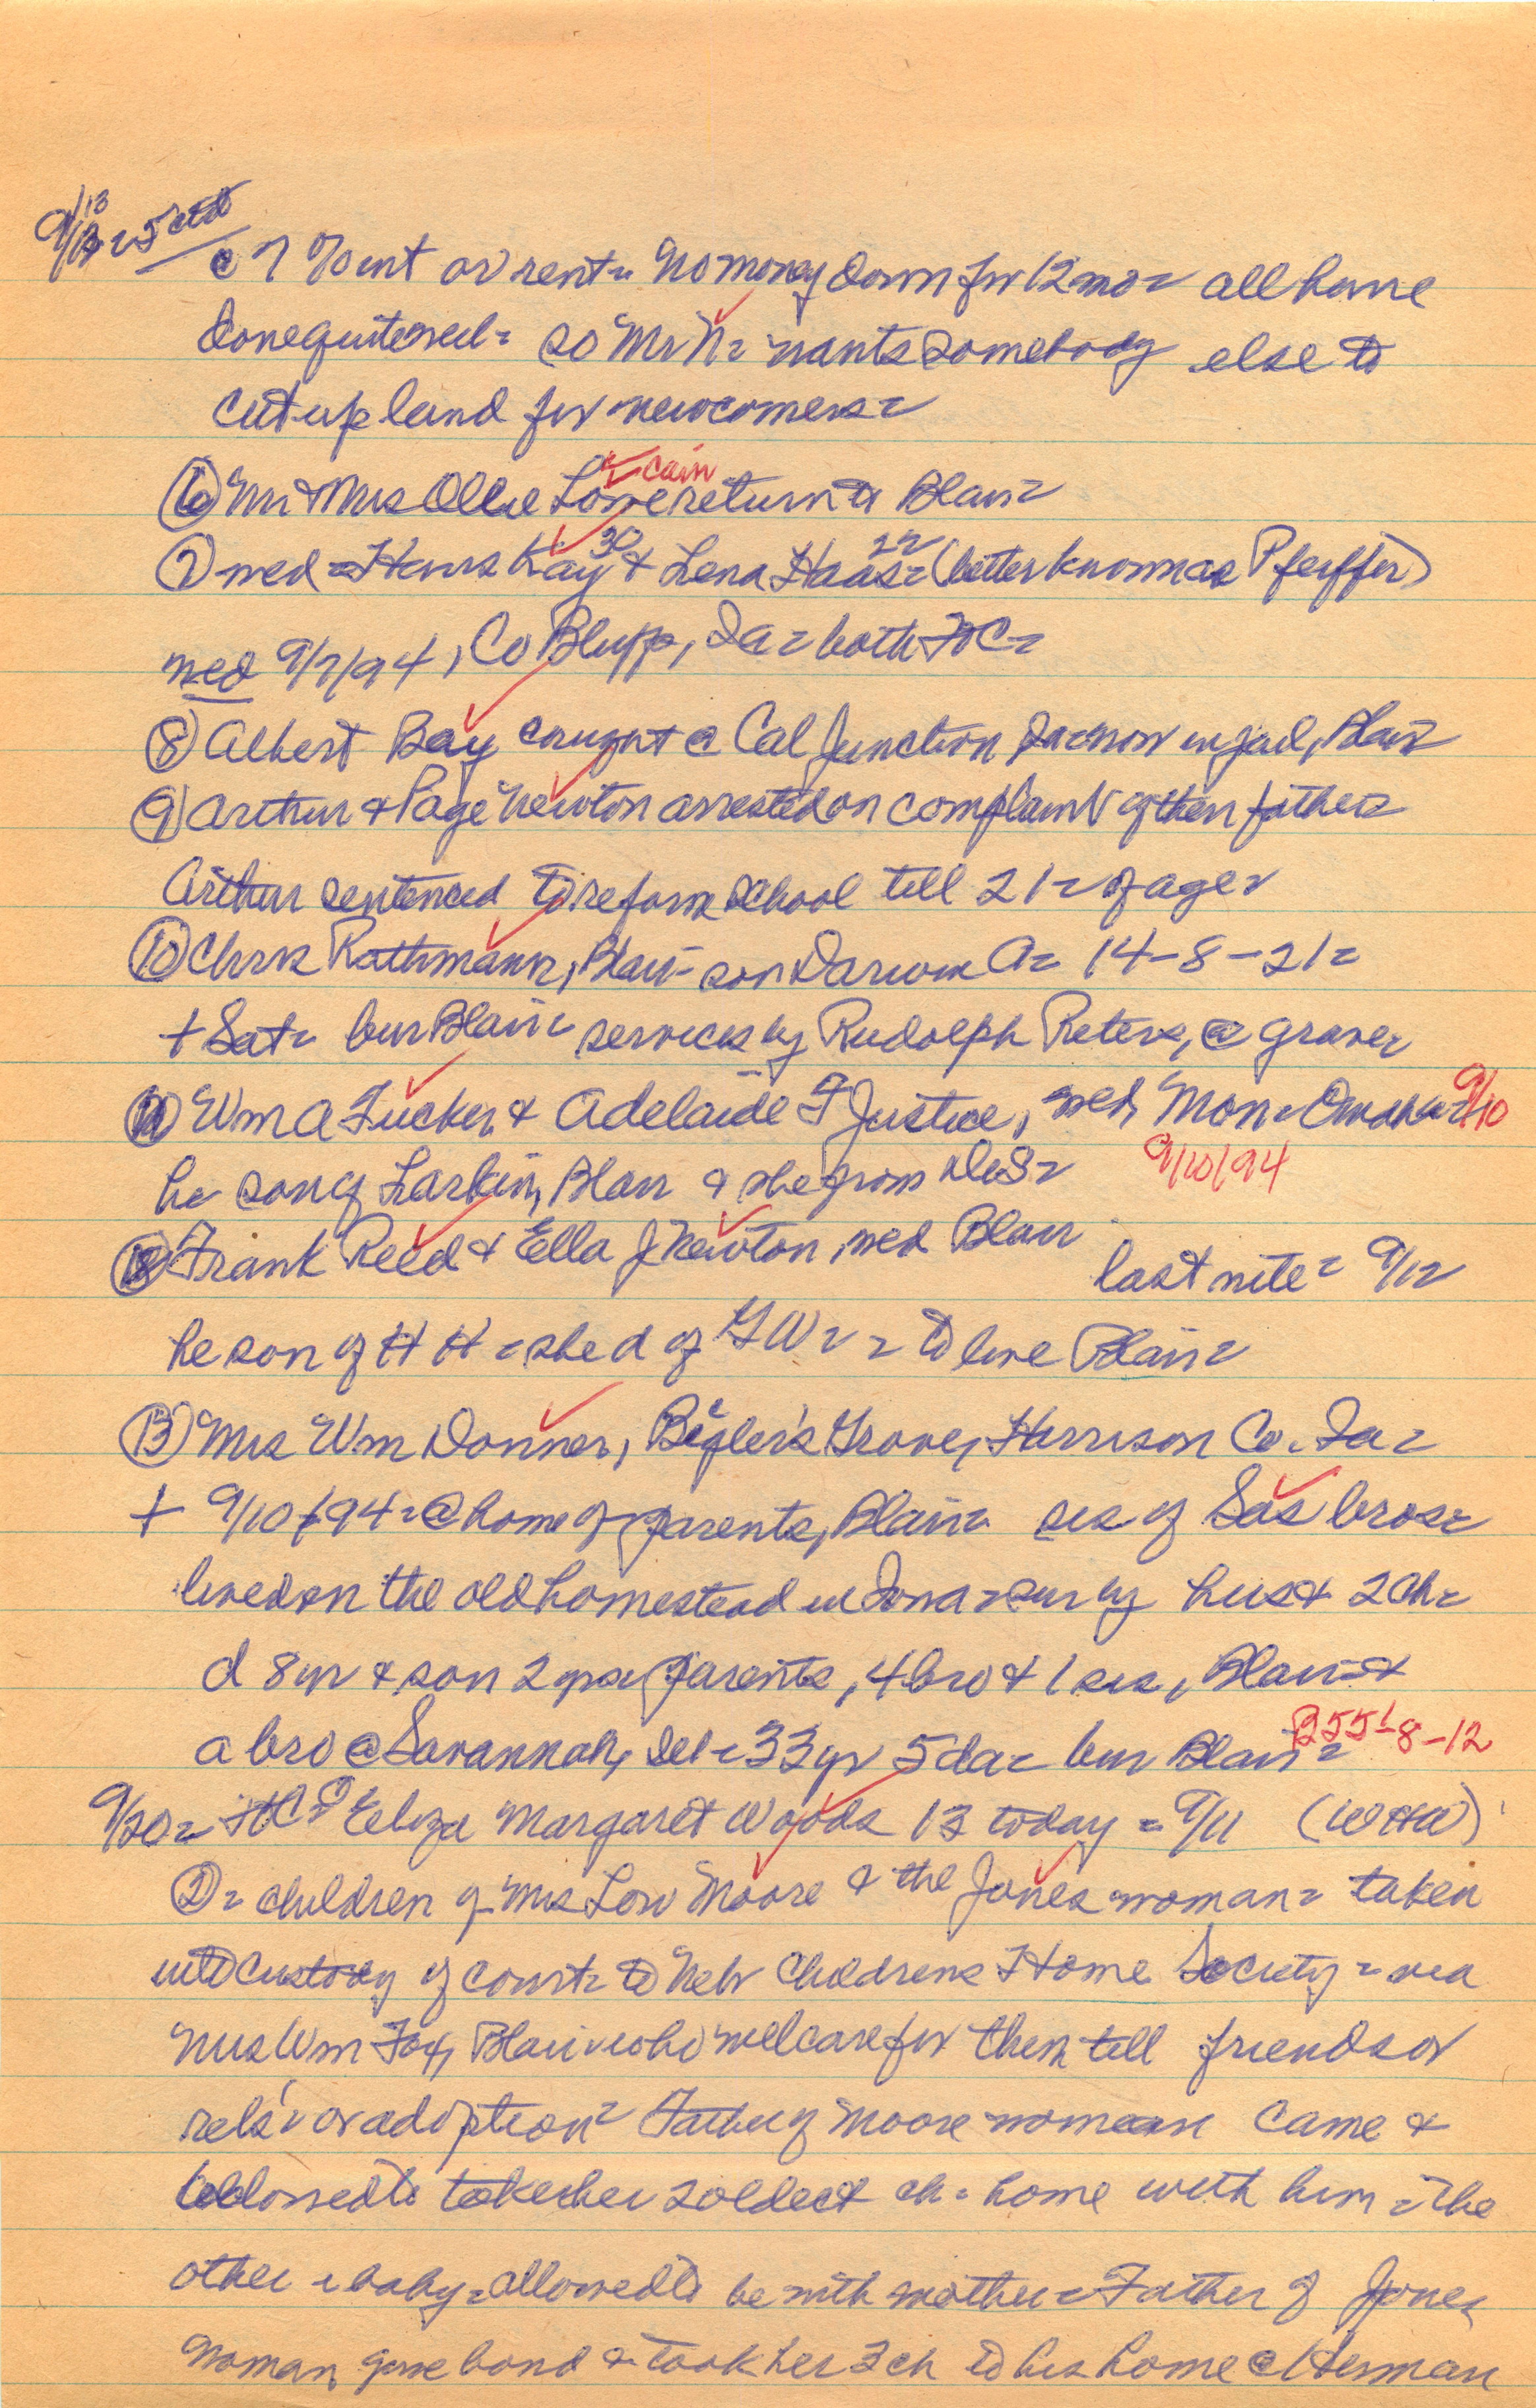 9/13 = 5 ctd
@ 7 % int or rent = No money down for 12 mo = all have
done quite well = so Mr N = wants somebody else to
cut up land for newcomers =
⑥ Mr & Mrs Ollie Lowe return to Blair =
Cain
⑦ med = Hans Kay 30 & Lena Haas 22 = (better known as Pfeiffer)
med 9/7/94, Co Bluff, Ia = both FtC =
⑧ Albert Bay caught @ Cal Junction Ia = now in jail, Blair
⑨ Arthur & Page Newton arrested on complaint of their father =
Arthur sentenced to reform school till 21 = of age =
⑩ Chris Rathmann, Blair = son Darwin A = 14-8-21 =
+ Sat = bur Blair = services by Rudolph Peters, @ grave =
⑪ Wm A Tucker & Adelaide F Justice, med, Mon = Omaha = 9/10
he son of Larkin, Blair & she from DeS = 9/10/94
⑫ Frank Reed & Ella J Newton, med Blair
last nite = 9/12
he son of H H = she d of G W = = to live Blair =
⑬ Mrs Wm Donner, Bigler's Grove, Harrison Co. Ia =
+ 9/10/94 = @ home of parents, Blair = sis of Sas bros =
lived on the old homestead in Iowa = sur by hus & 2 ch =
d 8 yr & son 2 yr = parents, 4 bro & 1 sis, Blair = &
a bro @ Savannah, = 33 yr 5 da = bur Blair =
B 551-8-12
9/20 = FtC ① Eliza Margaret Woods 13 today = 9/11 (WHW)
② = children of Mrs Low Moore & the Jones woman = taken
into custody of court = to Neb Childrens Home Society = via
Mrs Wm Fox, Blair who will care for them till friends or
rels' or adoption = Father of Moore woman came &
allowed to take her 2 oldest ch = home with him = the
other = baby = allowed to be with mother = Father of Jones
woman, gave bond & took her 3 ch to his home @ Herman